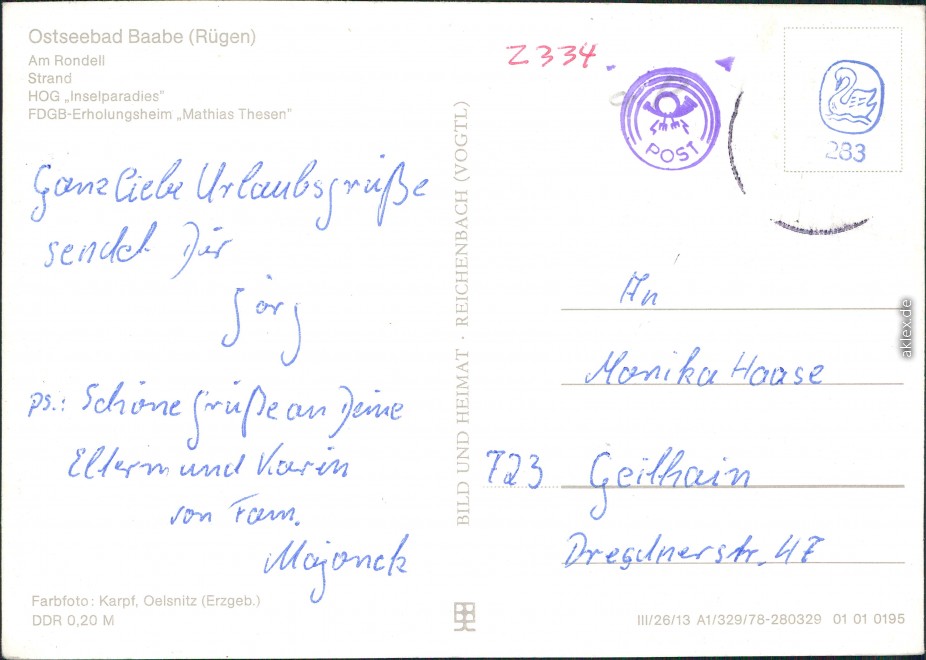 Ostseebad Baabe (Rügen)
Am Rondell
Strand
HOG „Inselparadies"
FDGB-Erholungsheim „Mathias Thesen"
Ganz liebe Urlaubsgrüße
sendet Dir
Jörg
ps.: Schöne Grüße an Deine
Eltern und Karin
von Fam.
Majonek
Farbfoto: Karpf, Oelsnitz (Erzgeb.)
DDR 0,20 M
BILD UND HEIMAT · REICHENBACH (VOGTL)
Z 334.
POST
283
An
Monika Haase
723 Geithain
Dresdnerstr. 47
III/26/13 A1/329/78-280329 01 01 0195
aklex.de